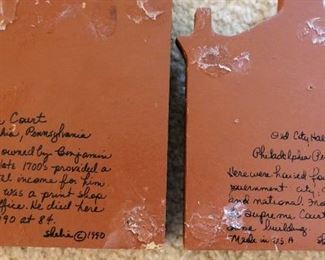 Court
Pennsylvania
owned by Benjamin
late 1700's provided a
income for him
was a print shop
office. He died here
90 at 84.
Shelia ©1990
Old City Hal
Philadelphia Pe
Here were housed fo
government city,
and national. Ind
Supreme Court
building
Made in U.S.A